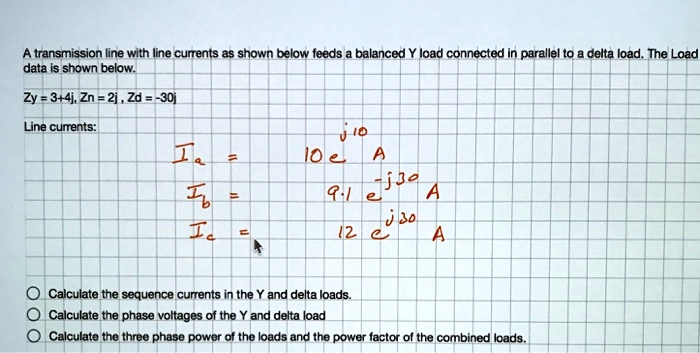 A transmission line with line currents as shown below feeds a balanced Y load connected in parallel to a delta load. The Load
data is shown below.
Zy = 3+4j, Zn = 2j , Zd = -30j
Line currents:
I_a = 10 e^{j10} A
I_b = 9.1 e^{-j30} A
I_c = 12 e^{j30} A
Calculate the sequence currents in the Y and delta loads.
Calculate the phase voltages of the Y and delta load
Calculate the three phase power of the loads and the power factor of the combined loads.